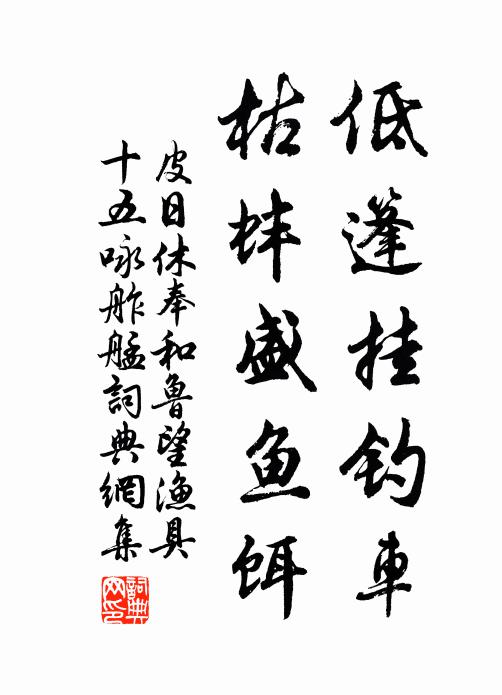 低篷挂钓車
枯蚌盛魚餌
皮日休奉和魯望漁具
十五咏舴艋詞典網集
詞典网印